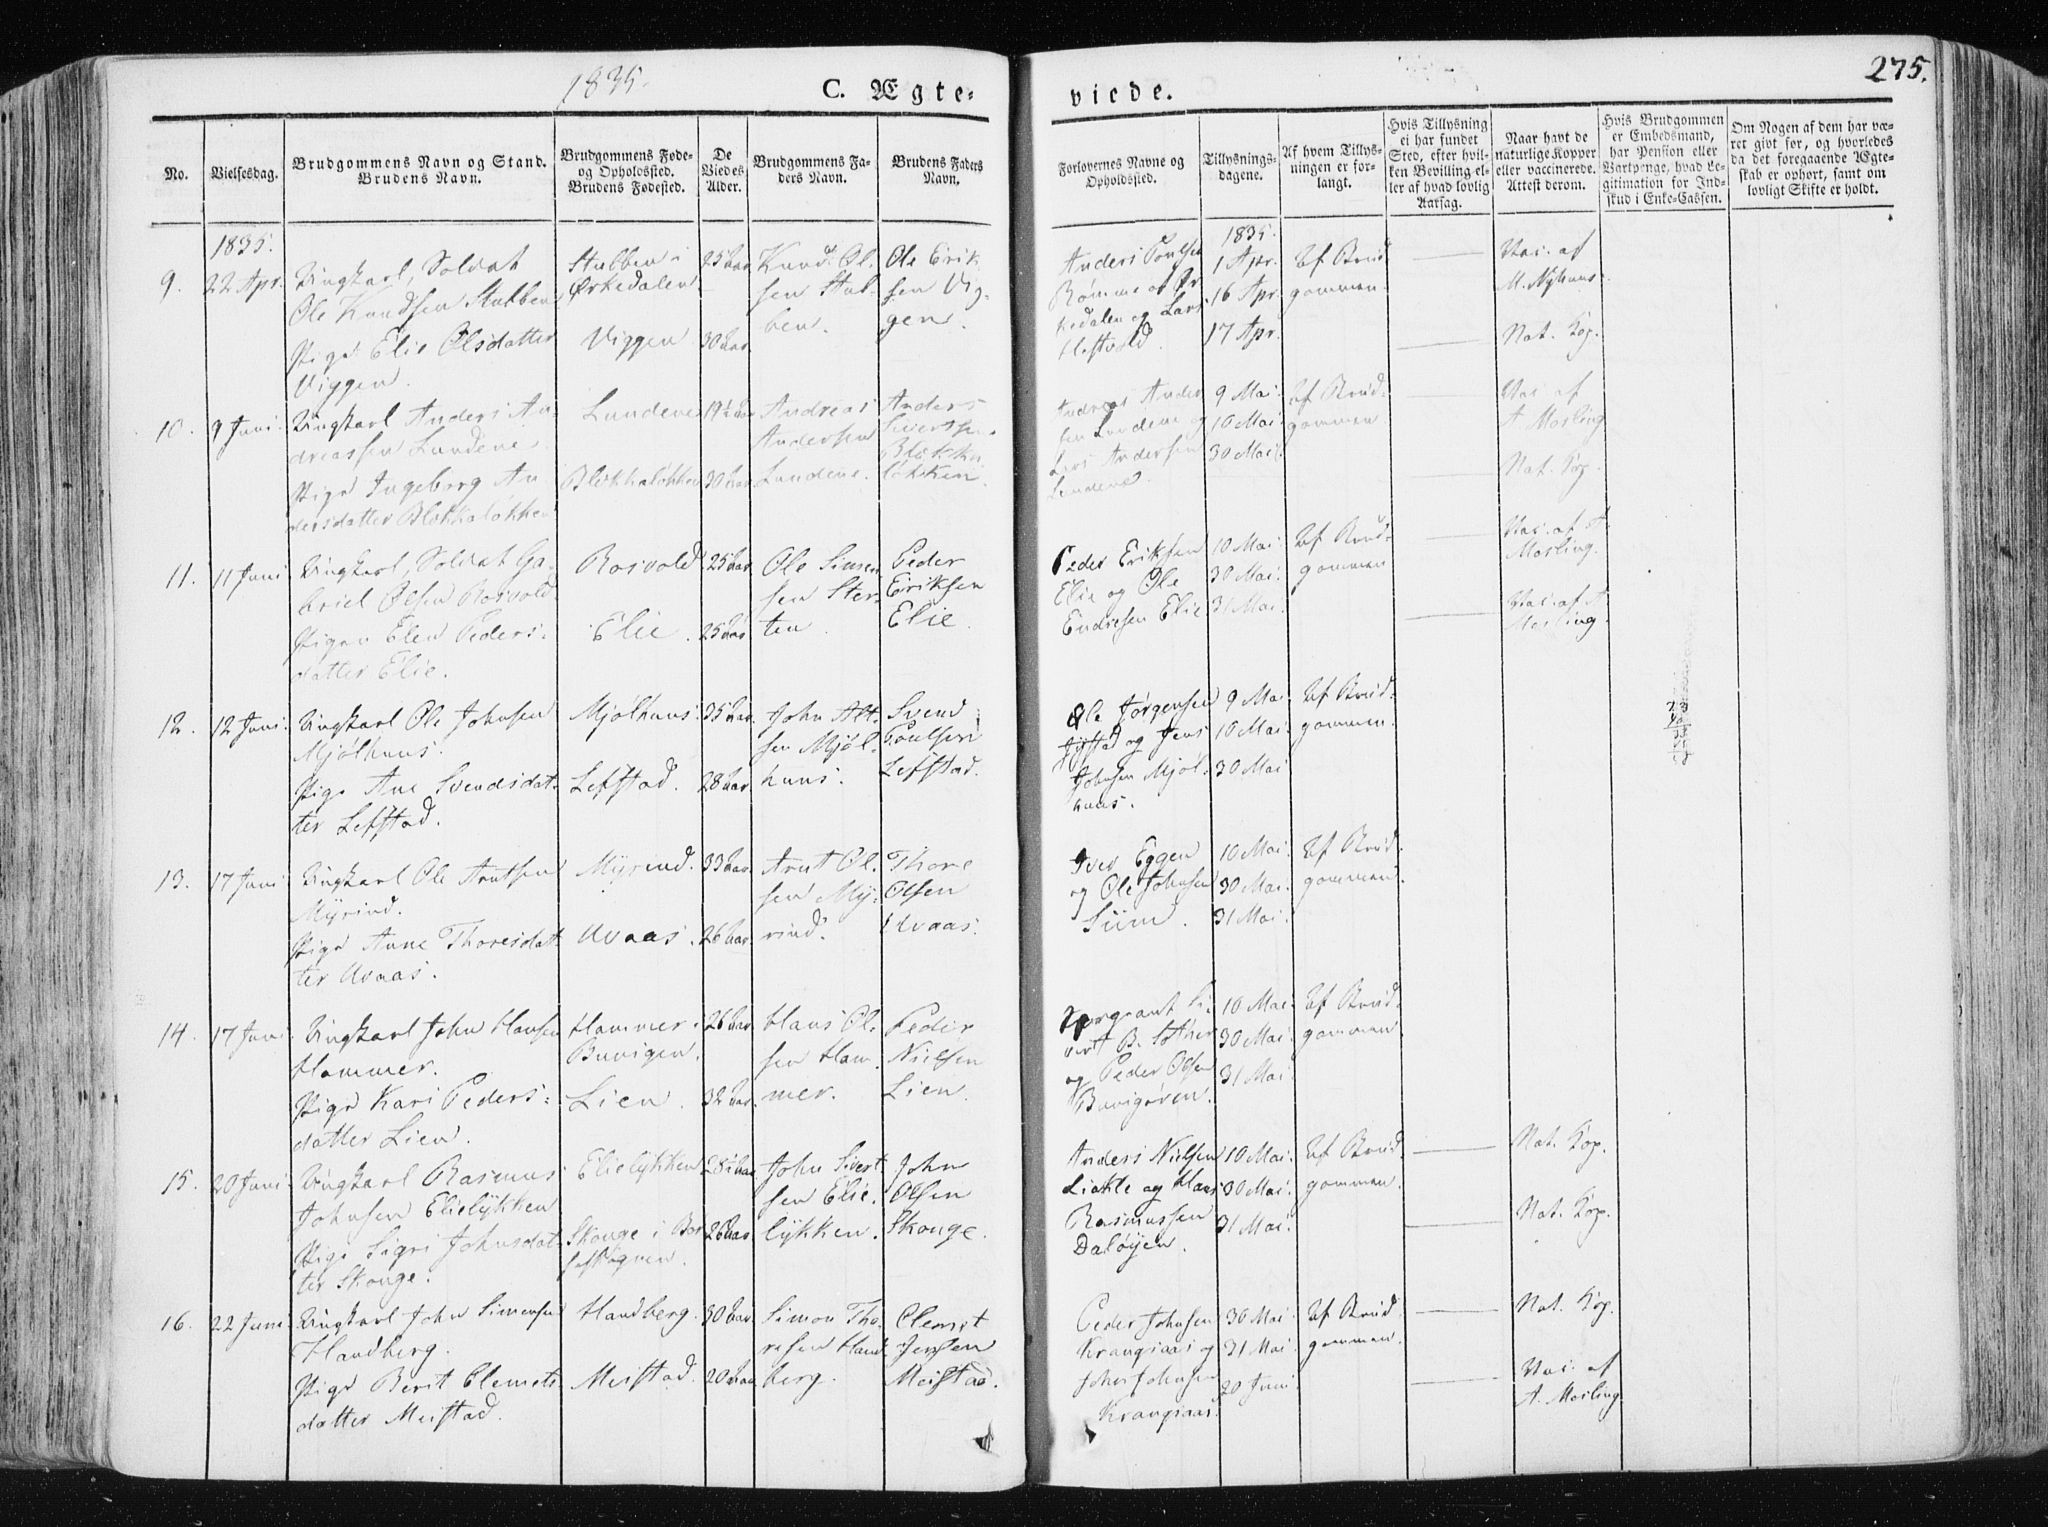 1835.
C. Ægte-
viede.
275.
No.
Vielsesdag.
Brudgommens Navn og Stand.
Brudens Navn.
Brudgommens Føde-
og Opholdssted.
Brudens Fødested.
De
Viedes
Alder.
Brudgommens Fa-
ders Navn.
Brudens Faders
Navn.
Forlovernes Navne og
Opholdssted.
Tillysnings-
dagene.
Af hvem Tillys-
ningen er for-
langt.
Hvis Tillysning
ei har fundet
Sted, efter hvil-
ken Bevilling el-
ler af hvad lovlig
Aarsag.
Naar havt de
naturlige Kopper
eller vaccinerede.
Attest derom.
Hvis Brudgommen
er Embedsmand,
har Pension eller
Vartpenge, hvad Le-
gitimation for Ind-
skud i Enke-Cassen.
Om Nogen af dem har væ-
ret givt før, og hvorledes
da det foregaaende Ægte-
skab er ophørt, samt om
lovligt Skifte er holdt.
1835.
9.
22 Apr.
Ungkarl, Soldat
Ole Knudsen Stubben
Pige Elie Olsdatter
Viggen.
Stubben i
Ørkedalen
Viggen
25 Aar
30 Aar
Knud Ol-
sen Stub-
ben.
Ole Erik-
sen Vig-
gen.
Anders Poulsen
Rømme af Ør-
kedalen og Lars
Hestvold.
1835.
1 Apr.
16 Apr.
17 Apr.
Af Brud-
gommen.
Vac. af
M. Nyhuus.
Nat. Kop.
10.
9 Juni.
Ungkarl Anders An-
dreassen Lundene.
Pige Ingeborg An-
dersdatter Blokkaløkken
Lundene
Blokkaløkken
19½ Aar
30 Aar
Andreas
Andersen
Lundene.
Anders
Sivertsen
Blokka-
løkken.
Andreas Ander-
sen Lundene og
Lars Andersen
Lundene.
9 Mai.
10 Mai.
30 Mai.
Af Brud-
gommen
Vac. af
A. Mosling
Nat. Kop.
11.
11 Juni
Ungkarl, Soldat Ga-
briel Olsen Rosvold
Pigen Elen Peders-
datter Elie.
Rosvold.
Elie.
25 Aar.
25 Aar
Ole Simen-
sen Ster-
ten
Peder
Eriksen
Elie.
Peder Eriksen
Elie og Ole
Endresen Elie
10 Mai
30 Mai.
31 Mai.
Af Brud-
gommen
Vac. af A.
Mosling.
Vac. af A.
Mosling.
12.
12 Juni.
Ungkarl Ole Johnsen
Mjølhuus.
Pige Ane Svendsdat-
ter Lefstad.
Mjølhuus.
Lefstad.
35 Aar.
28 Aar.
John Alt-
sen Mjøl-
huus.
Svend
Poulsen
Lefstad.
Ole Jørgensen
og Jens
Johnsen Mjøl-
huus.
9 Mai
10 Mai.
30 Mai
Af Brud-
gommen.
13.
17 Juni.
Ungkarl Ole Arntsen
Myrind.
Pige Anne Thoresdat-
ter Uvaas.
Myrind.
Uvaas.
33 Aar.
26 Aar.
Arnt Ol-
sen My-
rind.
Thore
Olsen
Uvaas.
Iver Eggen
og Ole Johnsen
Siim.
10 Mai.
30 Mai.
31 Mai.
Af Brud-
gommen.
14.
17 Juni
Ungkarl John Hansen
Hammer.
Pige Kari Peders-
datter Lien.
Hammer.
Buvigen.
Lien.
26 Aar.
32 Aar.
Hans Ol-
sen Ham-
mer.
Peder
Nielsen
Lien.
Sergeant Si-
vert B.
og Peder Olsen
Buvigøren.
10 Mai.
30 Mai.
31 Mai.
Af Brud-
gommen.
15.
20 Juni.
Ungkarl Rasmus
Johnsen Elielykken
Pige Sigri Johnsdat-
ter Skouge.
Elielykken
Skouge i Bør-
seskognen.
28½ Aar
26 Aar
John Sivert-
sen Elie-
lykken.
John
Olsen
Skouge.
Anders Nielsen
Liakle og Hans
Rasmussen
Daløyen.
10 Mai.
30 Mai.
31 Mai.
Af Brud-
gommen.
Nat. Kop.
Nat. Kop.
16.
22 Juni.
Ungkarl John Simensen
Handberg.
Pige Berit Clemets-
datter Meistad.
Handberg.
Meistad.
30 Aar.
20 Aar
Simon Tho-
resen Hand-
berg.
Clemet
Jensen
Meistad.
Peder Johnsen
Krangsaas og
Johnsen
Krangsaas.
30 Mai.
31 Mai.
20 Juni.
Af Brud-
gommen.
Nat. Kop.
Vac. af
A. Mosling